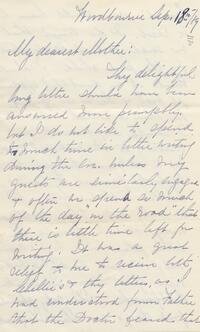 Woodbourne Sep. 18th/79
My dearest Mother:
Thy delightful
long letter should have been
answered more promptly,
but I do not like to spend
so much time in letter writing
during the unless my
guests are similarly engaged
& often we spend so much
of the day on the road that
there is little time left for
writing. It was a great
relief to me to receive both
& thy letters, as I
had understood from Father
that the Doctor feared that